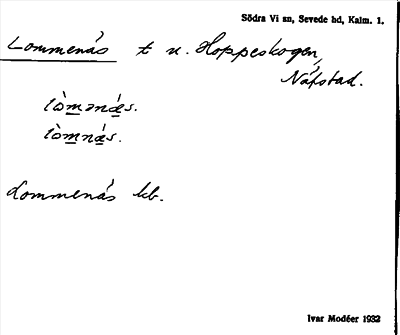 Södra Vi sn, Sevede hd, Kalm. l.
Lommenäs t u. Hoppeskogen,
Näfstad.
lòmənä́s.
lòmnä́s.
Lommenäs kb.
Ivar Modéer 1932